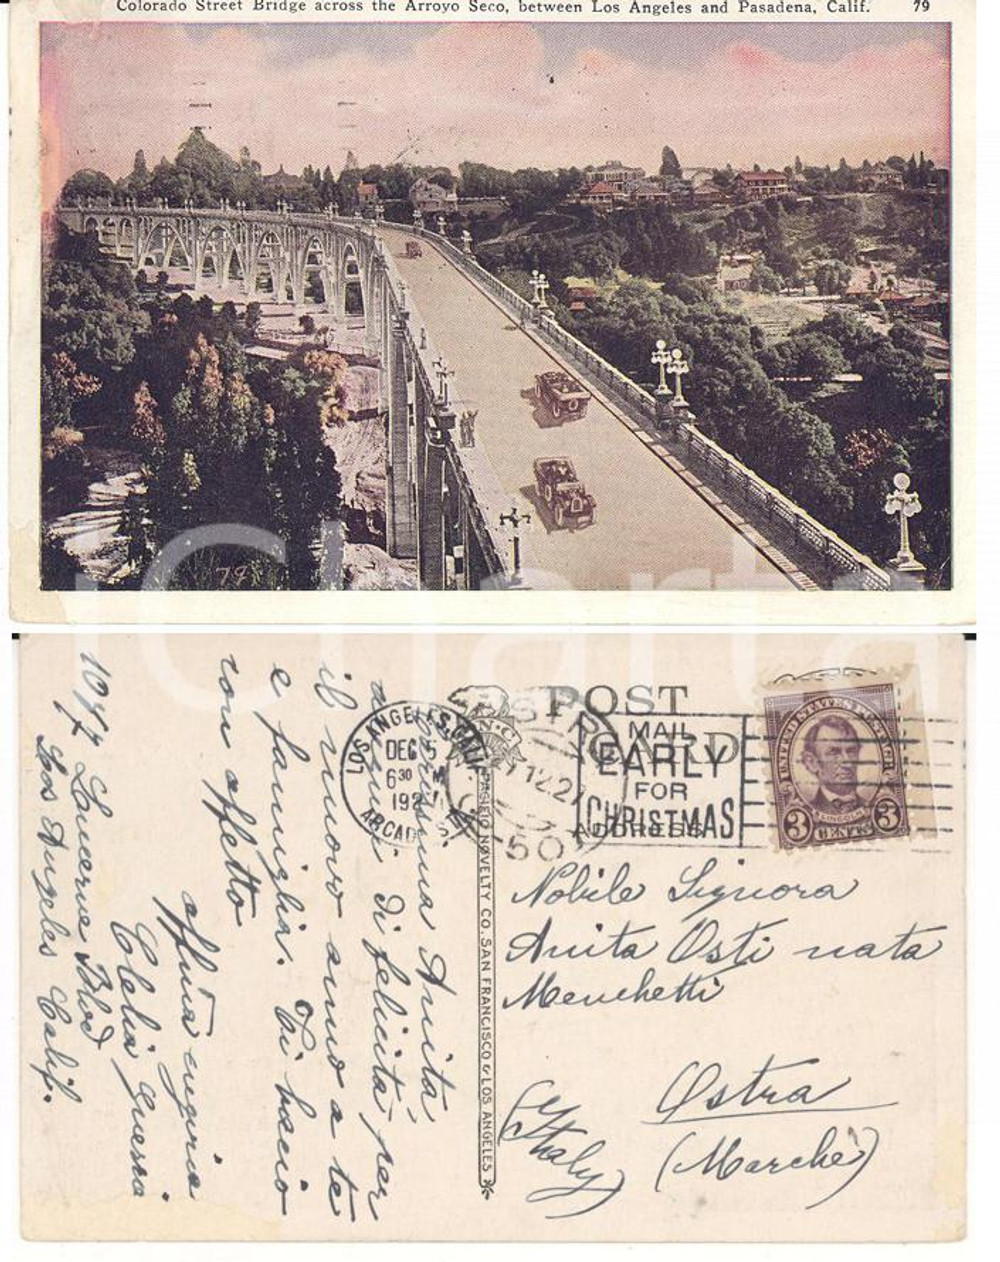 Colorado Street Bridge across the Arroyo Seco, between Los Angeles and Pasadena, Calif. 79
79
iCharta
POST CARD
ADDRESS
LOS ANGELES, CALIF.
DEC 5
6 30 M
192
ARCADE STA.
MAIL
EARLY
FOR
CHRISTMAS
UNITED STATES POSTAGE
LINCOLN
3 CENTS 3
PACIFIC NOVELTY CO. SAN FRANCISCO & LOS ANGELES
Carissima Anita,
auguri di felicità per
il nuovo anno a te
e famiglia. Ti bacio
con affetto
aff.ma cugina
Clelia Guerra
1047 Lucerne Blvd
Los Angeles Calif.
Nobile Signora
Anita Osti nata
Menchetti
Ostra
(Marche)
(Ithaly)